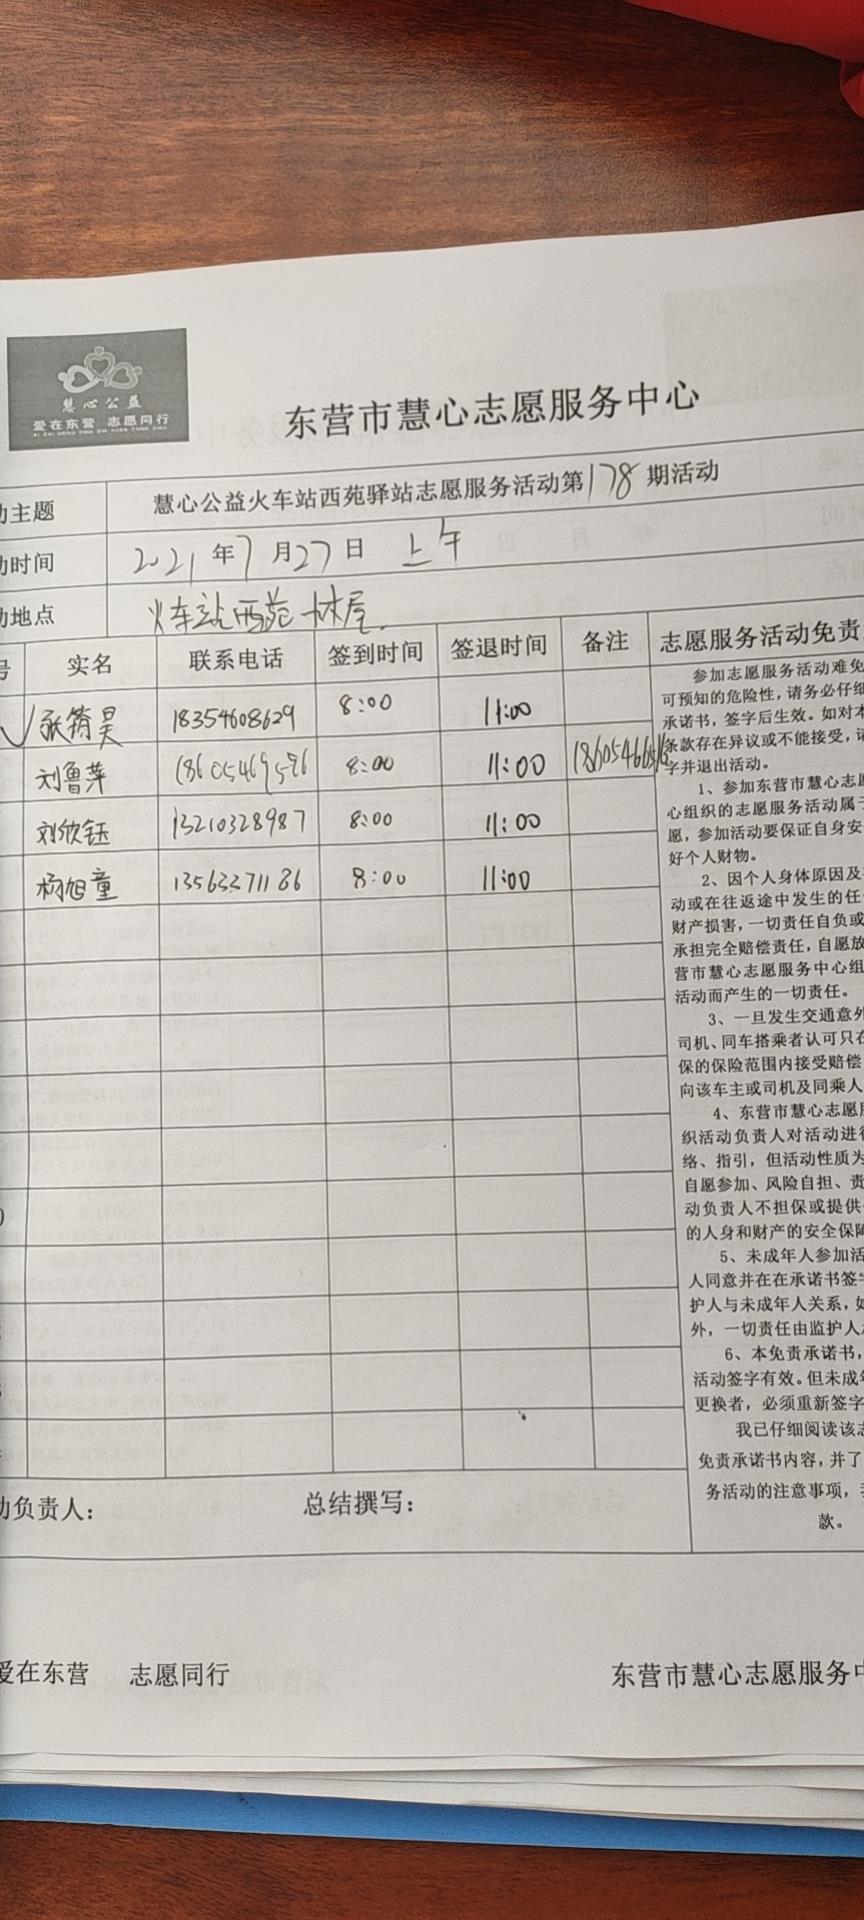 慧心公益
爱在东营 志愿同行
东营市慧心志愿服务中心
动主题 慧心公益火车站西苑驿站志愿服务活动第178期活动
动时间 2021年7月27日 上午
动地点 火车站西苑木屋
号 实名 联系电话 签到时间 签退时间 备注 志愿服务活动免责
张筠昊 18354608629 8:00 11:00
刘鲁萍 18605469596 8:00 11:00
刘欣钰 13210328987 8:00 11:00
杨旭童 13563371186 8:00 11:00
参加志愿服务活动难免
可预知的危险性，请务必仔细
承诺书，签字后生效。如对本
条款存在异议或不能接受，请
字并退出活动。
1、参加东营市慧心志愿
心组织的志愿服务活动属于
愿，参加活动要保证自身安
好个人财物。
2、因个人身体原因及
动或在往返途中发生的任
财产损害，一切责任自负或
承担完全赔偿责任，自愿放
营市慧心志愿服务中心组
活动而产生的一切责任。
3、一旦发生交通意外
司机、同车搭乘者认可只在
保的保险范围内接受赔偿
向该车主或司机及同乘人
4、东营市慧心志愿服
织活动负责人对活动进行
络、指引，但活动性质为
自愿参加、风险自担、责
动负责人不担保或提供
的人身和财产的安全保障
5、未成年人参加活
人同意并在在承诺书签字
护人与未成年人关系，如
外，一切责任由监护人
6、本免责承诺书，
活动签字有效。但未成年
更换者，必须重新签字
我已仔细阅读该志
免责承诺书内容，并了
务活动的注意事项，
款。
动负责人： 总结撰写：
爱在东营 志愿同行 东营市慧心志愿服务中